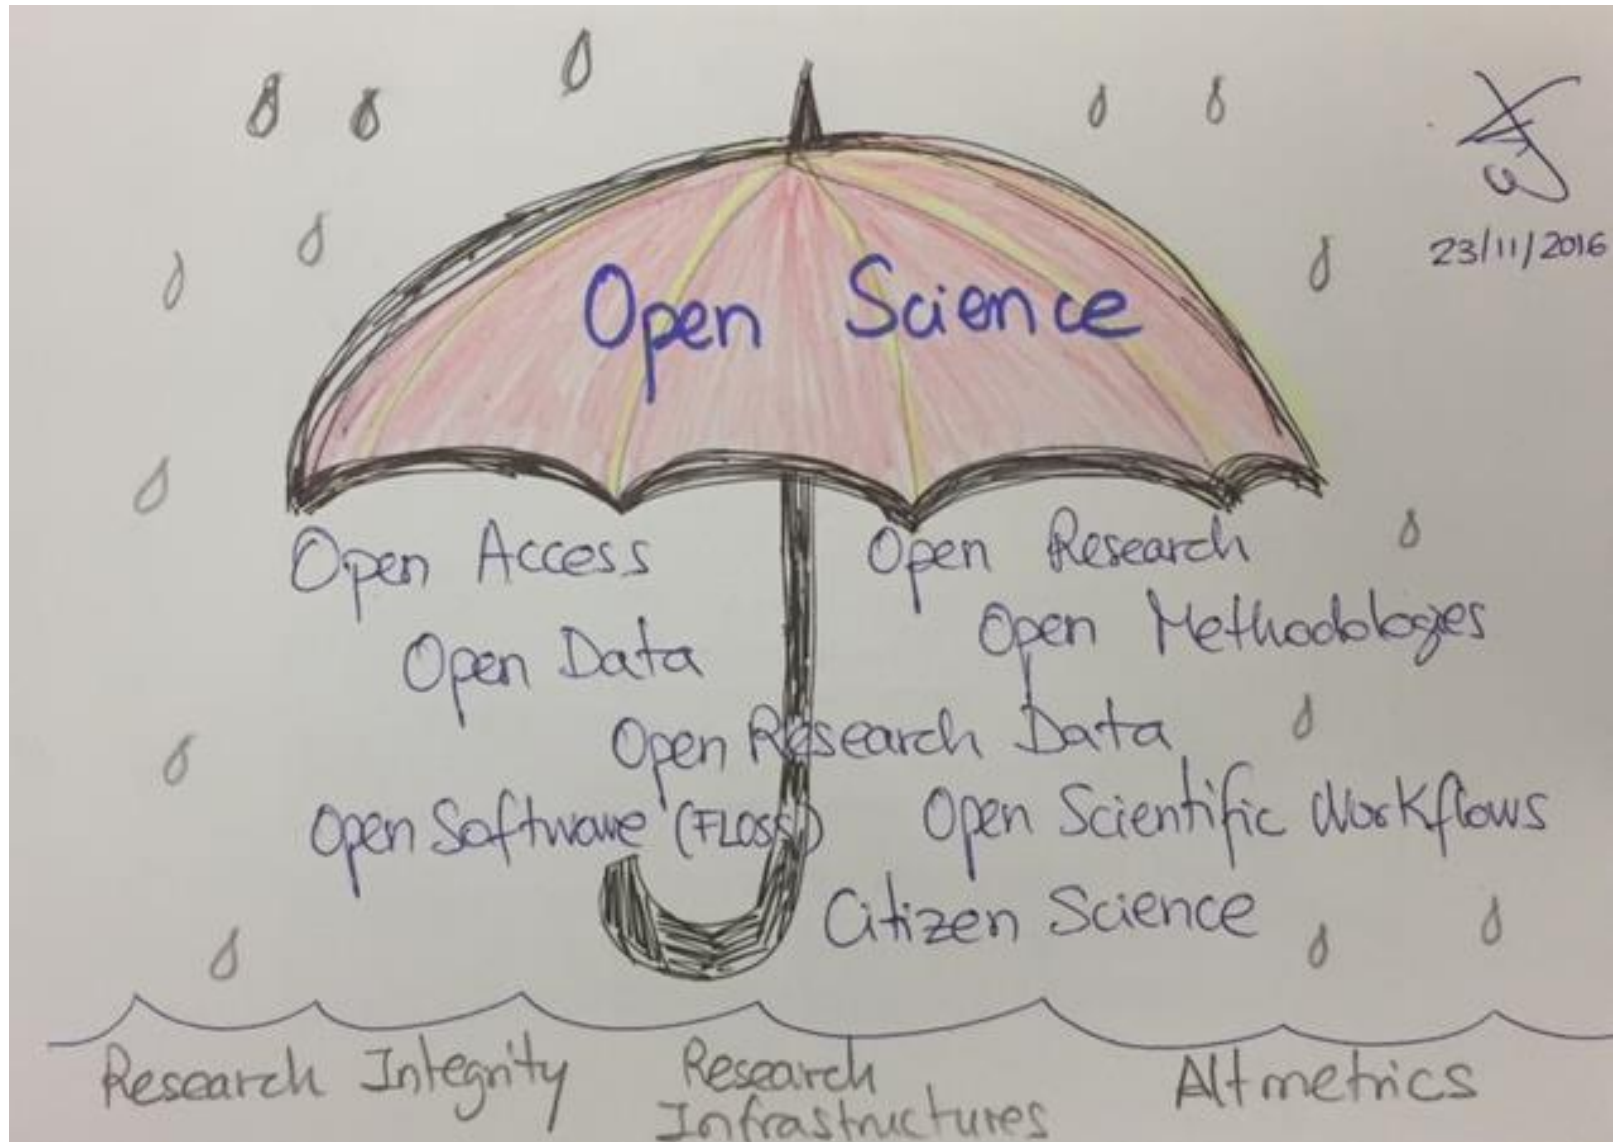 23/11/2016
Open Science
Open Access
Open Research
Open Methodologies
Open Data
Open Research Data
Open Software (FLOSS)
Open Scientific Workflows
Citizen Science
Research Integrity
Research
Infrastructures
Altmetrics